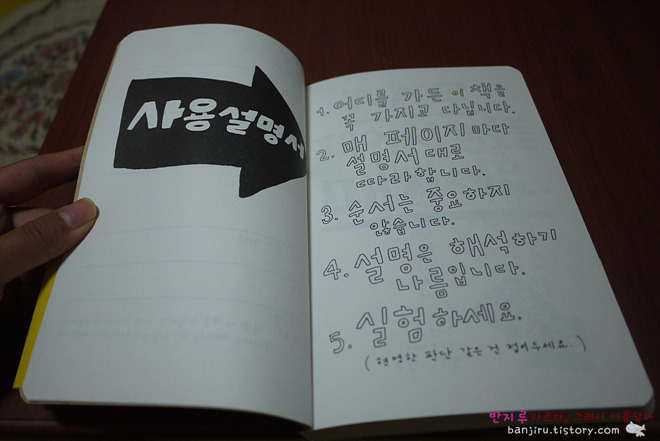 사용설명서
1. 어디를 가든 이 책을
꼭 가지고 다닙니다.
2. 매 페이지 마다
설명서 대로
따라합니다.
3. 순서는 중요하지
않습니다.
4. 설명은 해석하기
나름입니다.
5. 실험하세요.
(현명한 판단 같은 건 접어두세요.)
반지루
banjiru.tistory.com